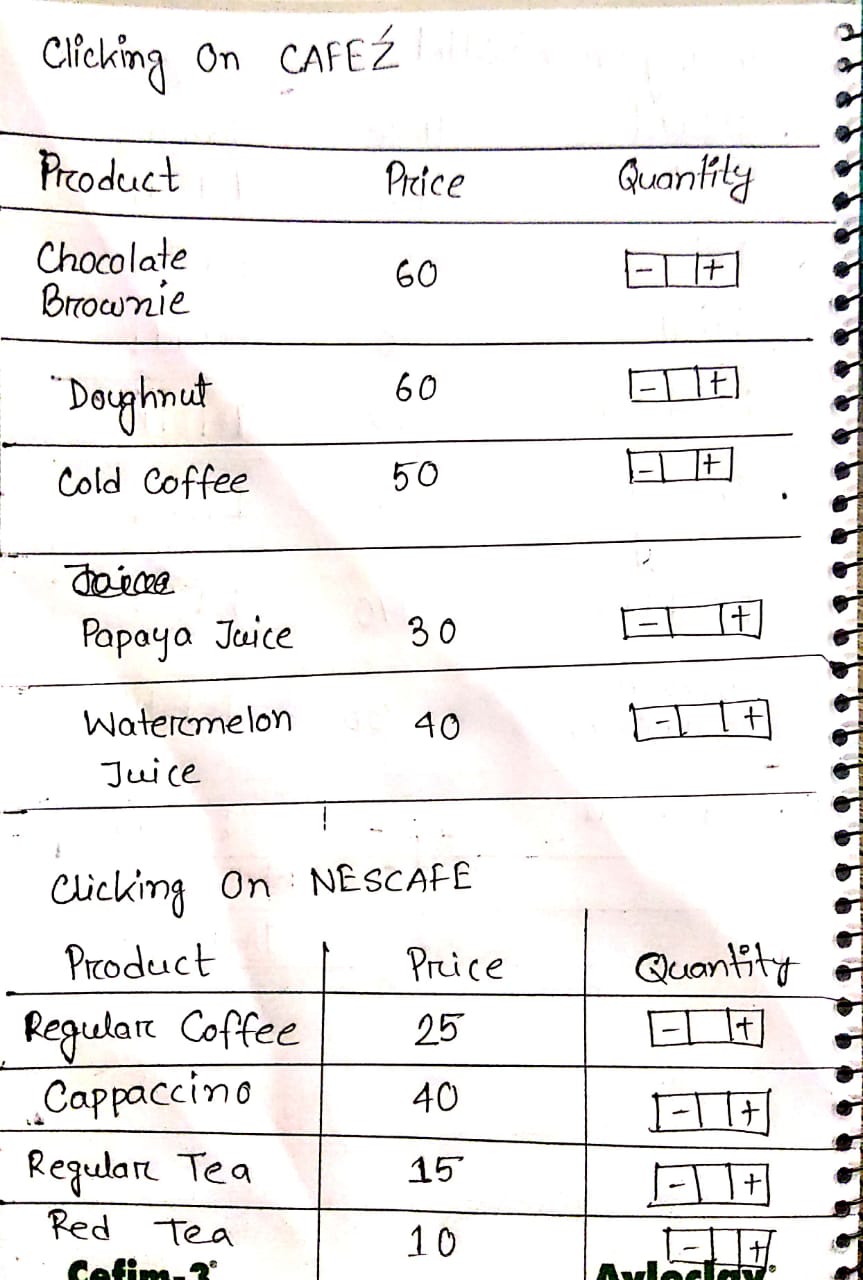 Clicking On CAFEŹ
Product Price Quantity
Chocolate
Brownie 60 - +
Doughnut 60 - +
Cold Coffee 50 - +
Papaya Juice 30 - +
Watermelon
Juice 40 - +
Clicking On NESCAFE
Product Price Quantity
Regular Coffee 25 - +
Cappaccino 40 - +
Regular Tea 15 - +
Red Tea 10 - +
Cefim-3® Avloclav®